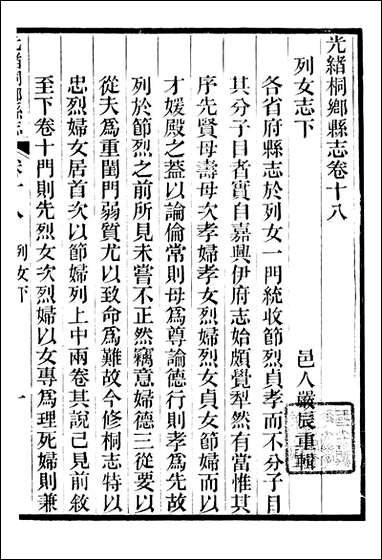 光緒桐鄉縣志卷十八
列女志下
邑人嚴辰重輯
各省府縣志於列女一門統收節烈貞孝而不分子目
其分子目者實自嘉興伊府志始頗覺犁然有當惟其
序先賢母壽母次孝婦孝女烈婦烈女貞女節婦而以
才媛殿之蓋以論倫常則母爲尊論德行則孝爲先故
列於節烈之前所見未嘗不正然竊意婦德三從要以
從夫爲重閨門弱質尤以致命爲難故今修桐志特以
忠烈婦女居首次以節婦列上中兩卷其說已見前敘
至下卷十門則先烈女次烈婦以女專爲理死婦則兼
列女下
一